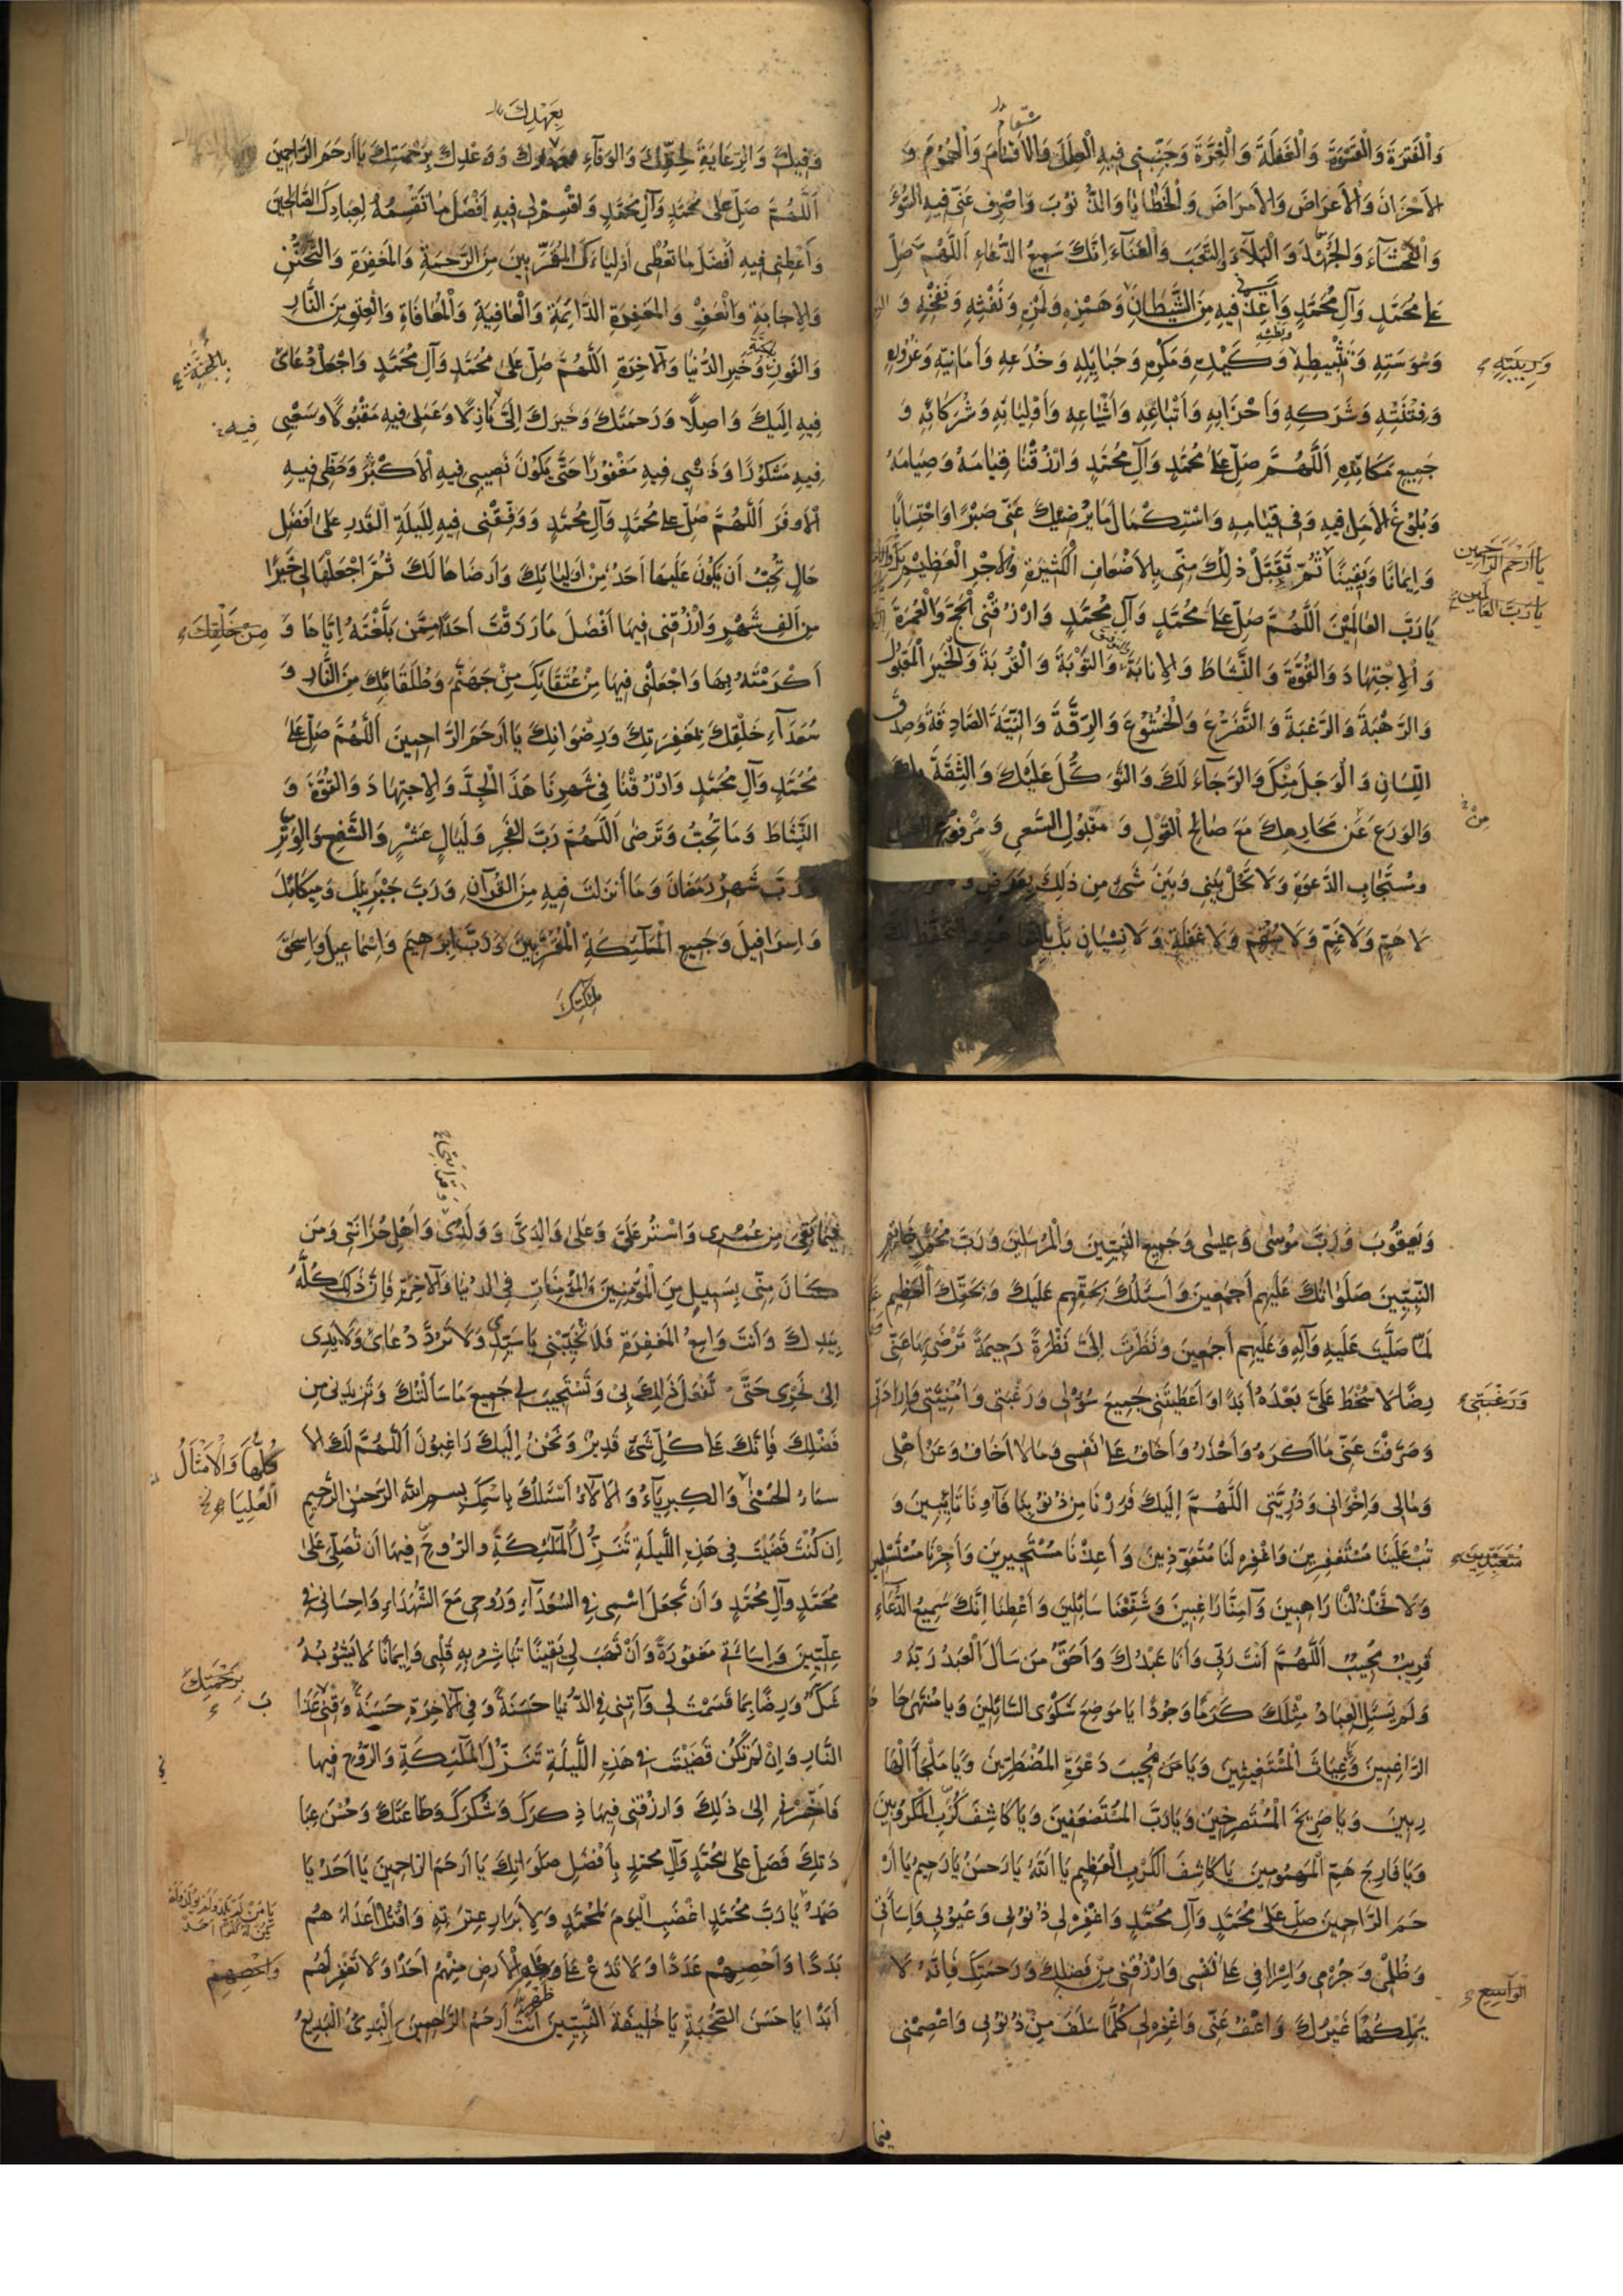 وَالْفَتْرَةَ وَالْقَسْوَةَ وَالْغَفْلَةَ وَالْغِرَّةَ وَجَنِّبْنِي فِيهِ الْعِلَلَ وَالْأَسْقَامَ وَالْهُمُومَ وَ
الْأَحْزَانَ وَالْأَعْرَاضَ وَالْأَمْرَاضَ وَالْخَطَايَا وَالذُّنُوبَ وَاصْرِفْ عَنِّي فِيهِ السُّوءَ
وَالْفَحْشَاءَ وَالْجَهْدَ وَالْبَلَاءَ وَالتَّعَبَ وَالْعَنَاءَ إِنَّكَ سَمِيعُ الدُّعَاءِ اَللّٰهُمَّ صَلِّ
عَلَى مُحَمَّدٍ وَآلِ مُحَمَّدٍ وَأَعِذْنِي فِيهِ مِنَ الشَّيْطَانِ وَهَمْزِهِ وَلَمْزِهِ وَنَفْثِهِ وَنَفْخِهِ وَ
وَسْوَسَتِهِ وَتَثْبِيطِهِ وَكَيْدِهِ وَمَكْرِهِ وَحَبَايِلِهِ وَخُدَعِهِ وَأَمَانِيِّهِ وَغُرُورِهِ
وَفِتْنَتِهِ وَشَرَكِهِ وَأَحْزَابِهِ وَأَتْبَاعِهِ وَأَشْيَاعِهِ وَأَوْلِيَائِهِ وَشُرَكَائِهِ وَ
جَمِيعِ مَكَائِدِهِ اَللّٰهُمَّ صَلِّ عَلَى مُحَمَّدٍ وَآلِ مُحَمَّدٍ وَارْزُقْنَا قِيَامَهُ وَصِيَامَهُ
وَبُلُوغَ الْأَمَلِ فِيهِ وَفِي قِيَامِهِ وَاسْتِكْمَالَ مَا يُرْضِيكَ عَنِّي صَبْرًا وَاحْتِسَابًا
وَإِيمَانًا وَيَقِينًا ثُمَّ تَقَبَّلْ ذٰلِكَ مِنِّي بِالْأَضْعَافِ الْكَثِيرَةِ وَالْأَجْرِ الْعَظِيمِ
يَا رَبَّ الْعَالَمِينَ اَللّٰهُمَّ صَلِّ عَلَى مُحَمَّدٍ وَآلِ مُحَمَّدٍ وَارْزُقْنِي الْحَجَّ وَالْعُمْرَةَ
وَالْاِجْتِهَادَ وَالْقُوَّةَ وَالنَّشَاطَ وَالْإِنَابَةَ وَالتَّوْبَةَ وَالْقُرْبَةَ وَالْخَيْرَ الْمَقْبُولَ
وَالرَّهْبَةَ وَالرَّغْبَةَ وَالتَّضَرُّعَ وَالْخُشُوعَ وَالرِّقَّةَ وَالنِّيَّةَ الصَّادِقَةَ وَصِدْقَ
اللِّسَانِ وَالْوَجَلَ مِنْكَ وَالرَّجَاءَ لَكَ وَالتَّوَكُّلَ عَلَيْكَ وَالثِّقَةَ بِكَ
وَالْوَرَعَ عَنْ مَحَارِمِكَ مَعَ صَالِحِ الْقَوْلِ وَمَقْبُولِ السَّعْيِ وَمَرْفُوعِ الْعَمَلِ
وَمُسْتَجَابِ الدَّعْوَةِ وَلَا تَحُلْ بَيْنِي وَبَيْنَ شَيْءٍ مِنْ ذٰلِكَ بِعَرَضٍ وَ
لَا هَمٍّ وَلَا غَمٍّ وَلَا سُقْمٍ وَلَا غَفْلَةٍ وَلَا نِسْيَانٍ بَلْ
وَرِيبَتِهِ
يَا أَرْحَمَ الرَّاحِمِينَ
يَا رَبَّ الْعَالَمِينَ
مِنْ
بِعَهْدِكَ
وَفِيكَ وَالرِّعَايَةَ لِحَقِّكَ وَالْوَفَاءِ وَوَعْدِكَ بِرَحْمَتِكَ يَا أَرْحَمَ الرَّاحِمِينَ
اَللّٰهُمَّ صَلِّ عَلَى مُحَمَّدٍ وَآلِ مُحَمَّدٍ وَاقْسِمْ لِي فِيهِ أَفْضَلَ مَا تَقْسِمُهُ لِعِبَادِكَ الصَّالِحِينَ
وَأَعْطِنِي فِيهِ أَفْضَلَ مَا تُعْطِي أَوْلِيَاءَكَ الْمُقَرَّبِينَ مِنَ الرَّحْمَةِ وَالْمَغْفِرَةِ وَالتَّحَنُّنِ
وَالْإِجَابَةِ وَالْعَفْوِ وَالْمَغْفِرَةِ الدَّائِمَةِ وَالْعَافِيَةِ وَالْمُعَافَاةِ وَالْعِتْقِ مِنَ النَّارِ
وَالْفَوْزِ وَخَيْرِ الدُّنْيَا وَالْآخِرَةِ اَللّٰهُمَّ صَلِّ عَلَى مُحَمَّدٍ وَآلِ مُحَمَّدٍ وَاجْعَلْ دُعَائِي
فِيهِ إِلَيْكَ وَاصِلًا وَرَحْمَتَكَ وَخَيْرَكَ إِلَيَّ نَازِلًا وَعَمَلِي فِيهِ مَقْبُولًا وَسَعْيِي
فِيهِ مَشْكُورًا وَذَنْبِي فِيهِ مَغْفُورًا حَتَّى يَكُونَ نَصِيبِي فِيهِ الْأَكْبَرُ وَحَظِّي فِيهِ
الْأَوْفَرَ اَللّٰهُمَّ صَلِّ عَلَى مُحَمَّدٍ وَآلِ مُحَمَّدٍ وَوَفِّقْنِي فِيهِ لِلَيْلَةِ الْقَدْرِ عَلَى أَفْضَلِ
حَالٍ تُحِبُّ أَنْ يَكُونَ عَلَيْهَا أَحَدٌ مِنْ أَوْلِيَائِكَ وَأَرْضَاهَا لَكَ ثُمَّ اجْعَلْهَا لِي خَيْرًا
مِنْ أَلْفِ شَهْرٍ وَارْزُقْنِي فِيهَا أَفْضَلَ مَا رَزَقْتَ أَحَدًا مِمَّنْ بَلَّغْتَهُ إِيَّاهَا وَ
أَكْرَمْتَهُ بِهَا وَاجْعَلْنِي فِيهَا مِنْ عُتَقَائِكَ مِنْ جَهَنَّمَ وَطُلَقَائِكَ مِنَ النَّارِ وَ
سُعَدَآءِ خَلْقِكَ بِمَغْفِرَتِكَ وَرِضْوَانِكَ يَا أَرْحَمَ الرَّاحِمِينَ اَللّٰهُمَّ صَلِّ عَلَى
مُحَمَّدٍ وَآلِ مُحَمَّدٍ وَارْزُقْنَا فِي شَهْرِنَا هَذَا الْجِدَّ وَالْاِجْتِهَادَ وَالْقُوَّةَ وَ
النَّشَاطَ وَمَا تُحِبُّ وَتَرْضَى اَللّٰهُمَّ رَبَّ الْفَجْرِ وَلَيَالٍ عَشْرٍ وَالشَّفْعِ وَالْوَتْرِ
وَرَبَّ شَهْرِ رَمَضَانَ وَمَا أَنْزَلْتَ فِيهِ مِنَ الْقُرْآنِ وَرَبَّ جَبْرَئِيلَ وَمِيكَائِلَ
وَإِسْرَافِيلَ وَجَمِيعِ الْمَلٰئِكَةِ الْمُقَرَّبِينَ وَرَبَّ إِبْرَهِيمَ وَإِسْمَاعِيلَ وَإِسْحَقَ
فِيهِ
مِنْ خَلْقِكَ
وَيَعْقُوبَ وَرَبَّ مُوسَى وَعِيسَى وَجَمِيعِ النَّبِيِّينَ وَالْمُرْسَلِينَ وَرَبَّ مُحَمَّدٍ خَاتَمِ
النَّبِيِّينَ صَلَوَاتُكَ عَلَيْهِمْ أَجْمَعِينَ وَأَسْئَلُكَ بِحَقِّهِمْ عَلَيْكَ وَبِحَقِّكَ الْعَظِيمِ
لَمَّا صَلَّيْتَ عَلَيْهِ وَآلِهِ وَعَلَيْهِمْ أَجْمَعِينَ وَنَظَرْتَ إِلَيَّ نَظْرَةً رَحِيمَةً تَرْضَى بِهَا عَنِّي
رِضًا لَا سَخَطَ عَلَيَّ بَعْدَهُ أَبَدًا وَأَعْطَيْتَنِي جَمِيعَ سُؤْلِي وَرَغْبَتِي وَأُمْنِيَّتِي وَإِرَادَتِي
وَصَرَفْتَ عَنِّي مَا أَكْرَهُ وَأَحْذَرُ وَأَخَافُ عَلَى نَفْسِي وَمَا لَا أَخَافُ وَعَنْ أَهْلِي
وَمَالِي وَإِخْوَانِي وَذُرِّيَّتِي اَللّٰهُمَّ إِلَيْكَ فَرَرْنَا مِنْ ذُنُوبِنَا فَآوِنَا تَائِبِينَ وَ
تُبْ عَلَيْنَا مُسْتَغْفِرِينَ وَاغْفِرْ لَنَا مُتَعَوِّذِينَ وَأَعِذْنَا مُسْتَجِيرِينَ وَأَجِرْنَا مُسْتَسْلِمِينَ
وَلَا تَخْذُلْنَا رَاهِبِينَ وَآمِنَّا رَاغِبِينَ وَشَفِّعْنَا سَائِلِينَ وَأَعْطِنَا إِنَّكَ سَمِيعُ الدُّعَآءِ
قَرِيبٌ مُجِيبٌ اَللّٰهُمَّ أَنْتَ رَبِّي وَأَنَا عَبْدُكَ وَأَحَقُّ مَنْ سَأَلَ الْعَبْدُ رَبَّهُ
وَلَمْ يَسْئَلِ الْعِبَادُ مِثْلَكَ كَرَمًا وَجُودًا يَا مَوْضِعَ شَكْوَى السَّائِلِينَ وَيَا مُنْتَهَى حَا
الرَّاغِبِينَ وَغِيَاثَ الْمُسْتَغِيثِينَ وَيَا مَنْ يُجِيبُ دَعْوَةَ الْمُضْطَرِّينَ وَيَا مَلْجَأَ الْهَا
رِبِينَ وَيَا صَرِيخَ الْمُسْتَصْرِخِينَ وَيَا رَبَّ الْمُسْتَضْعَفِينَ وَيَا كَاشِفَ كُرَبِ الْمَكْرُوبِينَ
وَيَا فَارِجَ هَمِّ الْمَهْمُومِينَ يَا كَاشِفَ الْكَرْبِ الْعَظِيمِ يَا اَللّٰهُ يَا رَحْمٰنُ يَا رَحِيمُ يَا أَرْ
حَمَ الرَّاحِمِينَ صَلِّ عَلَى مُحَمَّدٍ وَآلِ مُحَمَّدٍ وَاغْفِرْ لِي ذُنُوبِي وَعُيُوبِي وَإِسَاءَتِي
وَظُلْمِي وَجُرْمِي وَإِسْرَافِي عَلَى نَفْسِي وَارْزُقْنِي مِنْ فَضْلِكَ وَرَحْمَتِكَ فَإِنَّهُ لَا
يَمْلِكُهَا غَيْرُكَ وَاعْفُ عَنِّي وَاغْفِرْ لِي كُلَّمَا سَلَفَ مِنْ ذُنُوبِي وَاعْصِمْنِي
وَرَغْبَتِي
الْوَاسِعِ
فيما
فِيمَا بَقِيَ مِنْ عُمُرِي وَاسْتُرْ عَلَيَّ وَعَلَى وَالِدَيَّ وَوَلَدِي وَأَهْلِ حُزَانَتِي وَمَنْ
كَانَ مِنِّي بِسَبِيلٍ مِنَ الْمُؤْمِنِينَ وَالْمُؤْمِنَاتِ فِي الدُّنْيَا وَالْآخِرَةِ فَإِنَّ ذَلِكَ كُلَّهُ
بِيَدِكَ وَأَنْتَ وَاسِعُ الْمَغْفِرَةِ فَلَا تُخَيِّبْنِي يَا سَيِّدِي وَلَا تَرُدَّ دُعَائِي وَلَا يَدِي
إِلَى نَحْرِي حَتَّى تَفْعَلَ ذَلِكَ بِي وَتَسْتَجِيبَ لِي جَمِيعَ مَا سَأَلْتُكَ وَتَزِيدَنِي مِنْ
فَضْلِكَ فَإِنَّكَ عَلَى كُلِّ شَيْءٍ قَدِيرٌ وَنَحْنُ إِلَيْكَ رَاغِبُونَ اَللّٰهُمَّ لَكَ الْأَ
سْمَاءُ الْحُسْنَى وَالْكِبْرِيَآءُ وَالْآلَآءُ أَسْئَلُكَ بِاسْمِكَ بِسْمِ اللّٰهِ الرَّحْمٰنِ الرَّحِيمِ
إِنْ كُنْتَ قَضَيْتَ فِي هَذِهِ اللَّيْلَةِ تَنَزُّلَ الْمَلٰئِكَةِ وَالرُّوحِ فِيهَا أَنْ تُصَلِّيَ عَلَى
مُحَمَّدٍ وَآلِ مُحَمَّدٍ وَأَنْ تَجْعَلَ اسْمِي فِي السُّعَدَآءِ وَرُوحِي مَعَ الشُّهَدَاءِ وَإِحْسَانِي فِي
عِلِّيِّينَ وَإِسَائَتِي مَغْفُورَةً وَأَنْ تَهَبَ لِي يَقِينًا تُبَاشِرُ بِهِ قَلْبِي وَإِيمَانًا لَا يَشُوبُهُ
شَكٌّ وَرِضًا بِمَا قَسَمْتَ لِي وَآتِنِي فِي الدُّنْيَا حَسَنَةً وَفِي الْآخِرَةِ حَسَنَةً وَقِنِي عَذَا
النَّارِ وَإِنْ لَمْ تَكُنْ قَضَيْتَ فِي هَذِهِ اللَّيْلَةِ تَنَزُّلَ الْمَلٰئِكَةِ وَالرُّوحِ فِيهَا
فَأَخِّرْنِي إِلَى ذَلِكَ وَارْزُقْنِي فِيهَا ذِكْرَكَ وَشُكْرَكَ وَطَاعَتَكَ وَحُسْنَ عِبَا
دَتِكَ فَصَلِّ عَلَى مُحَمَّدٍ وَآلِ مُحَمَّدٍ بِأَفْضَلِ صَلَوَاتِكَ يَا أَرْحَمَ الرَّاحِمِينَ يَا أَحَدُ يَا
صَمَدُ يَا رَبَّ مُحَمَّدٍ اغْضَبِ الْيَوْمَ لِمُحَمَّدٍ وَلِأَبْرَارِ عِتْرَتِهِ وَاقْتُلْ أَعْدَاءَهُمْ
بَدَدًا وَأَحْصِهِمْ عَدَدًا وَلَا تَدَعْ عَلَى الْأَرْضِ مِنْهُمْ أَحَدًا وَلَا تَغْفِرْ لَهُمْ
أَبَدًا يَا حَسَنَ الصُّحْبَةِ يَا خَلِيفَةَ النَّبِيِّينَ أَنْتَ أَرْحَمُ الرَّاحِمِينَ الْبَدِيءُ الْبَدِيعُ
كُلُّهَا وَالْأَمْثَالُ
الْعُلْيَا
بِرَحْمَتِكَ
وَأَحْصِهِمْ